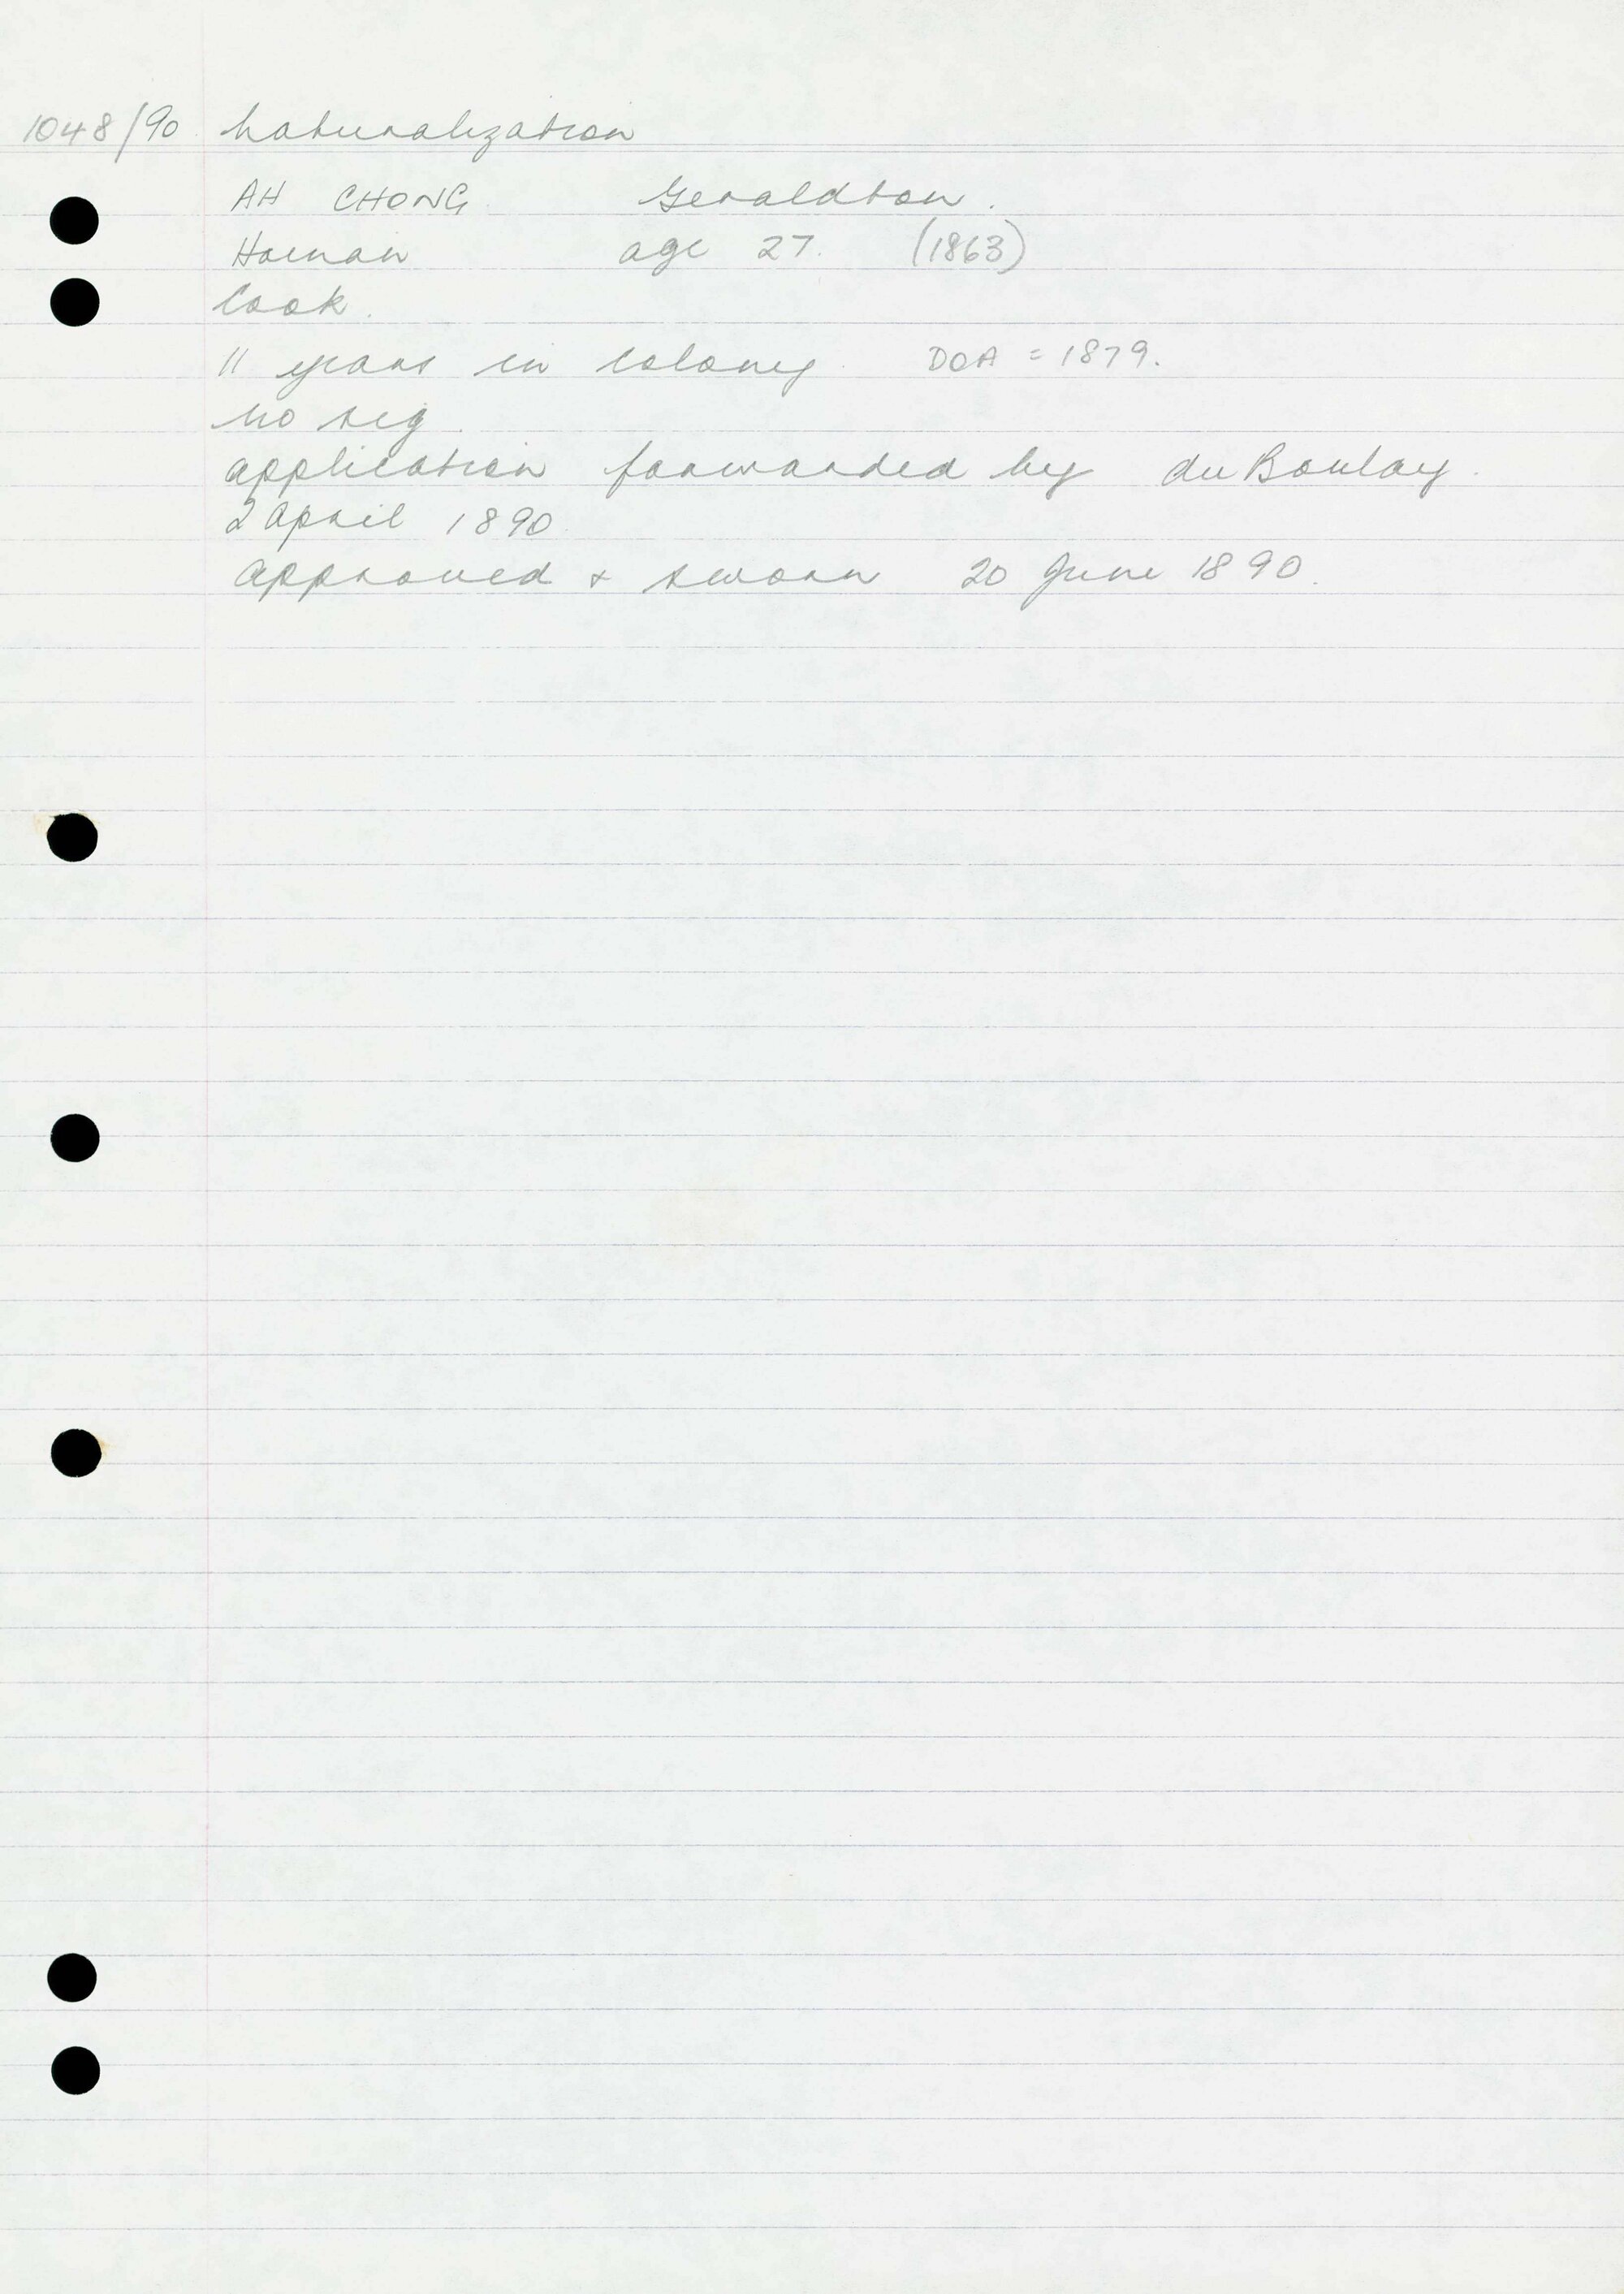 1048/90 Naturalization
AH CHONG Geraldton.
Hainan age 27. (1863)
Cook.
11 years in colony. DOA = 1879.
no sig.
application forwarded by du Boulay.
2 April 1890
approved & sworn 20 June 1890.